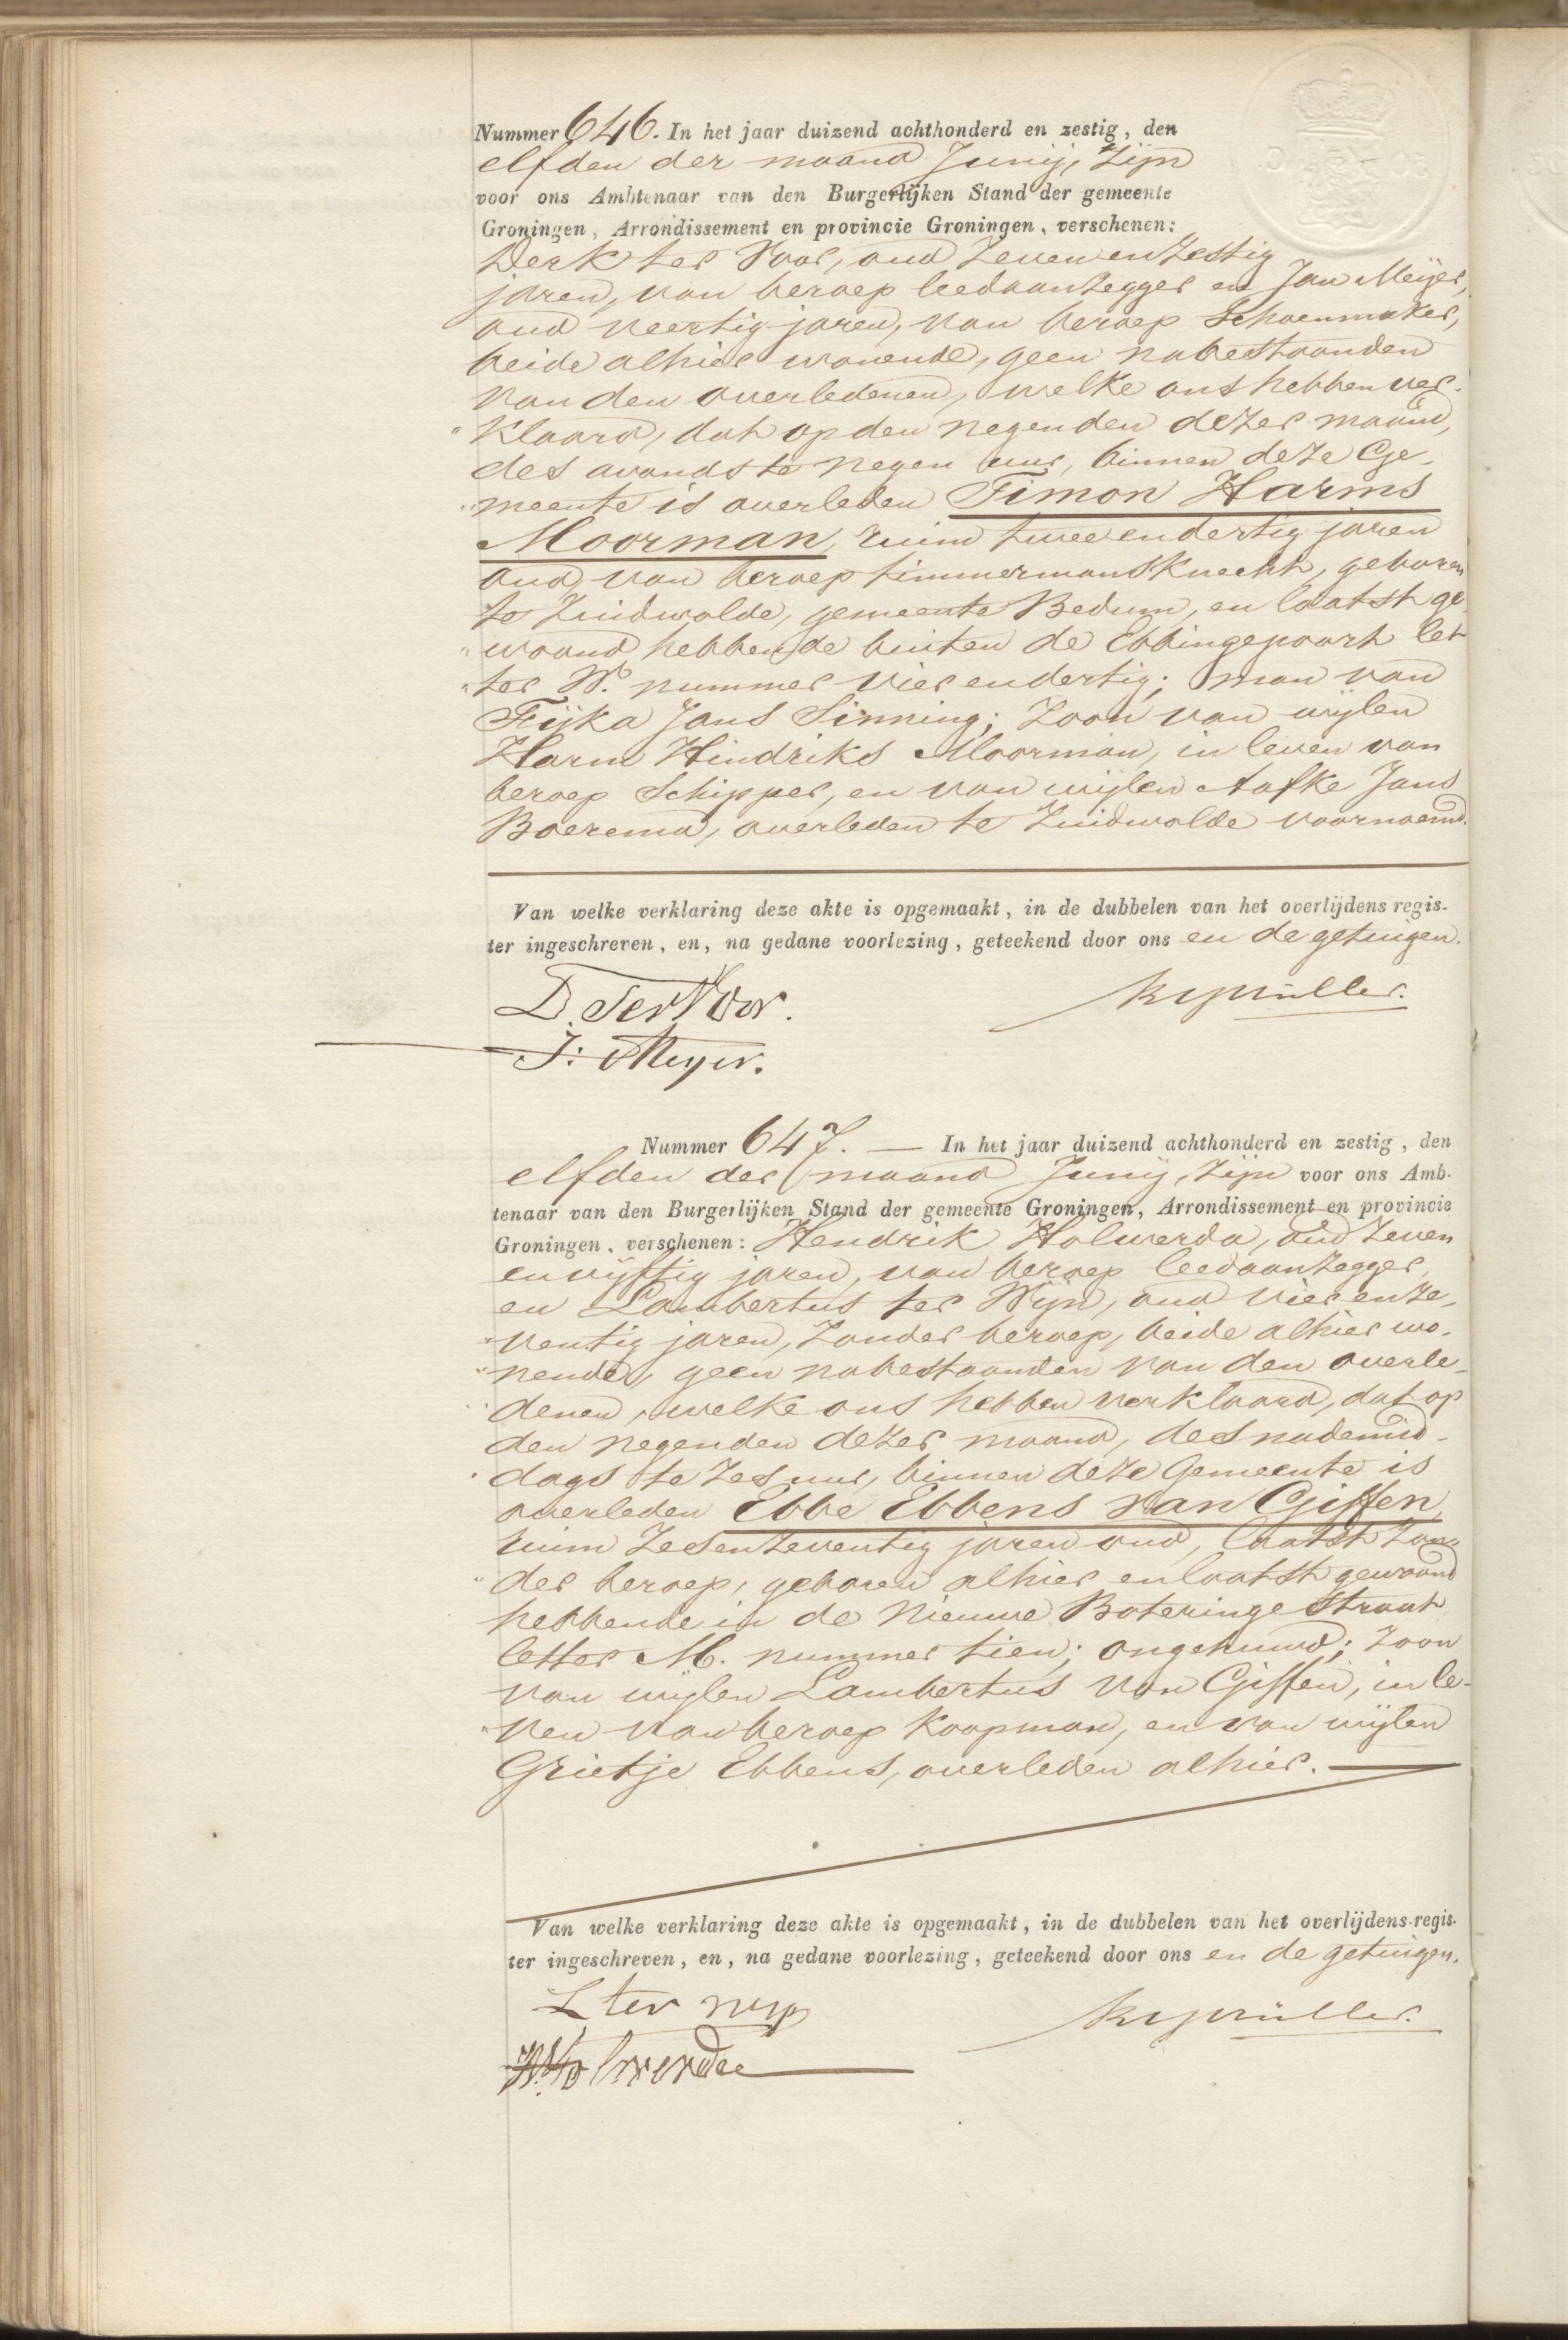 Nummer 646. In het jaar duizend achthonderd en zestig, den
elfden der maand Junij, zijn
voor ons Ambtenaar van den Burgerlijken Stand der gemeente
Groningen, Arrondissement en provincie Groningen, verschenen:
Derk ter Voor, oud zevenenzestig
jaren, van beroep leedaanzegger en Jan Meijer,
oud veertig jaren, van beroep Schoenmaker,
beide alhier wonende, geen nabestaanden
van den overledenen, welke ons hebben ver-
"klaard, dat op den negenden dezer maand,
des avonds te negen uur, binnen deze Ge-
"meente is overleden Timon Harms
Moorman, ruim tweeendertig jaren
oud, van beroep timmermansknecht, geboren
te Zuidwolde, gemeente Bedum, en laatst ge-
"woond hebbende buiten de Ebbingepoort let-
"ter W. nummer vierendertig; man van
Fijka Jans Sinning; Zoon van wijlen
Harm Hindriks Moorman, in leven van
beroep Schipper, en van wijlen Aafke Jans
Boerema, overleden te Zuidwolde voornoemd.
Van welke verklaring deze akte is opgemaakt, in de dubbelen van het overlijdens regis-
ter ingeschreven, en, na gedane voorlezing, geteekend door ons en de getuigen.
D. Ter Voor.
J: Meyer.
Nummer 647. — In het jaar duizend achthonderd en zestig, den
elfden der maand Junij, zijn voor ons Amb-
tenaar van den Burgerlijken Stand der gemeente Groningen, Arrondissement en provincie
Groningen, verschenen: Hendrik Holwerda, oud zeven
envijftig jaren, van beroep leedaanzegger,
en Lambertus ter Wijn, oud vierenze-
"ventig jaren, zonder beroep, beide alhier wo-
"nende, geen nabestaanden van den overle-
"denen, welke ons hebben verklaard, dat op
den negenden dezer maand, des nademid-
"dags te zes uur, binnen deze Gemeente is
overleden Ebbe Ebbens van Giffen,
ruim zesenzeventig jaren oud, laatst zon-
"der beroep, geboren alhier en laatst gewoond
hebbende in de Nieuwe Boteringe straat
letter M. nummer tien; ongehuwd; Zoon
van wijlen Lambertus van Giffen, in le-
"ven van beroep Koopman, en van wijlen
Grietje Ebbens, overleden alhier.
Van welke verklaring deze akte is opgemaakt, in de dubbelen van het overlijdens-regis-
ter ingeschreven, en, na gedane voorlezing, geteekend door ons en de getuigen.
L ter wijn
H. Holwerda